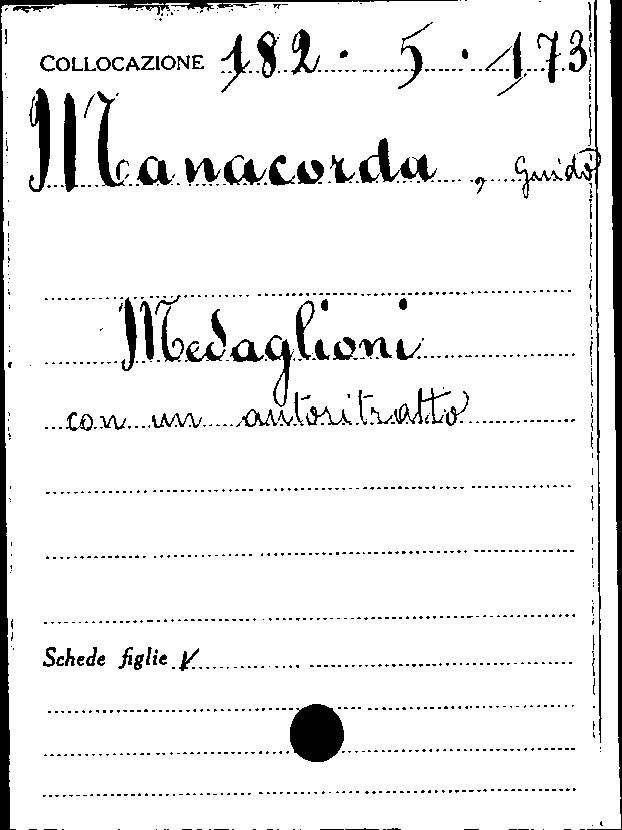 COLLOCAZIONE 182 . 5 . 173
Manacorda, Guido
Medaglioni
con un autoritratto
Schede figlie V